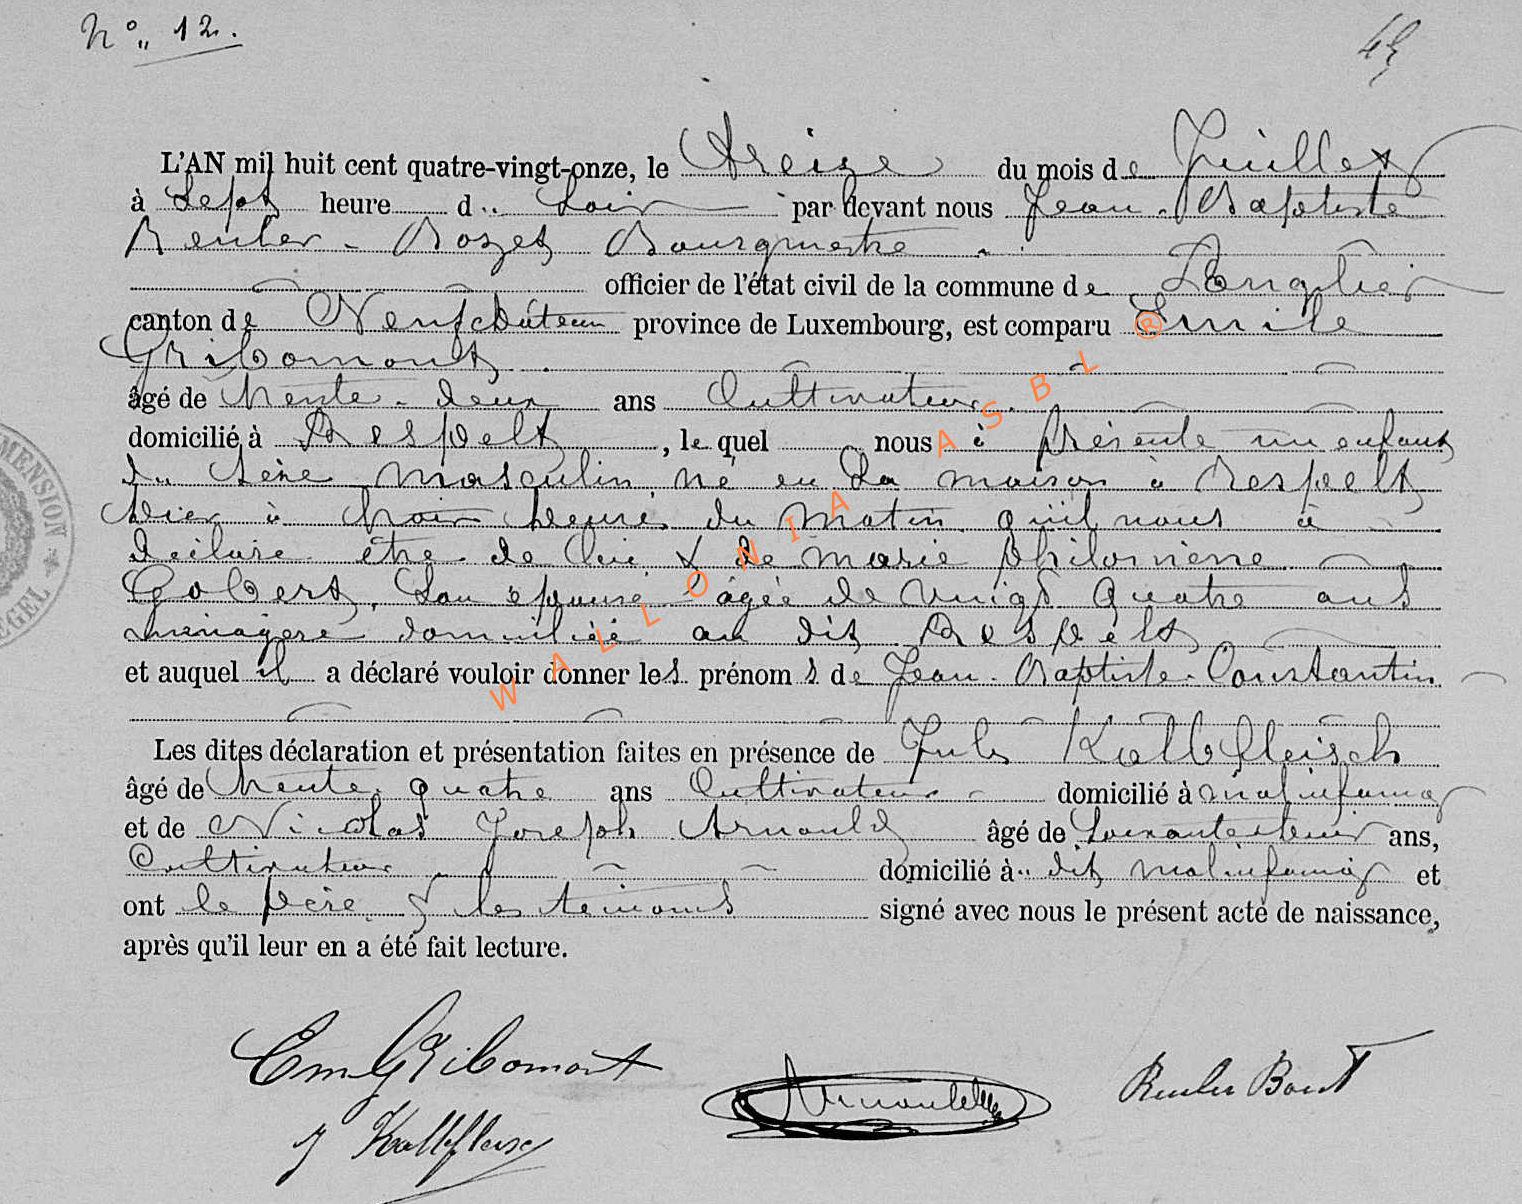 N° 12.
L'AN mil huit cent quatre-vingt-onze, le treize du mois de Juillet
à Sept heure d.. Soir par devant nous Jean-Baptiste
Reuler - Bozet Bourgmestre
officier de l'état civil de la commune de Longlier
canton de Neufchâteau province de Luxembourg, est comparu Emile
Gribomont
âgé de trente-deux ans Cultivateur
domicilié à Respelt, le quel nous à présenté un enfant
du sèxe masculin, né en Sa maison à Respelt
hier à trois heures du matin qu'il nous à
déclaré être de lui & de Marie Philomène
Gobert, Son épouse âgée de vingt quatre ans
ménagère domiciliée au dit Respelt
et auquel il a déclaré vouloir donner les prénoms de Jean-Baptiste-Constantin
Les dites déclaration et présentation faites en présence de Jules Kalbfleisch
âgé de trente quatre ans Cultivateur domicilié à Molinfaing
et de Nicolas Joseph Arnould âgé de ans,
Cultivateur domicilié à.. dit Molinfaing et
ont le père & les témoins signé avec nous le présent acte de naissance,
après qu'il leur en a été fait lecture.
Em Gribomont
J Kalbfleisch
Arnould
Reuler
WALLONIA ASBL ®
DIMENSION
ZEGEL